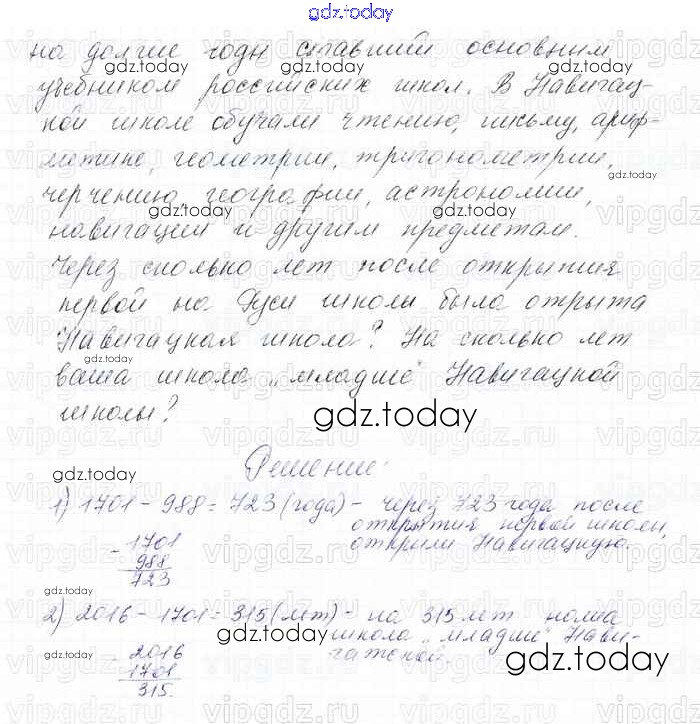 gdz.today
на долгие годы ставший основным
учебником российских школ. В Навигац-
ной школе обучали чтению, письму, ариф-
метике, геометрии, тригонометрии,
черчению, географии, астрономии,
навигации и другим предметам.
Через сколько лет после открытия
первой на Руси школы была открыта
Навигацкая школа? На сколько лет
ваша школа „младше" Навигацкой
школы?
gdz.today
Решение:
1) 1701 - 988 = 723 (года) - через 723 года после
открытия первой школы,
открыли Навигацкую.
- 1701
988
723
2) 2016 - 1701 = 315 (лет) - на 315 лет
школа „младше" Нави-
гатской.
- 2016
1701
315.
gdz.today